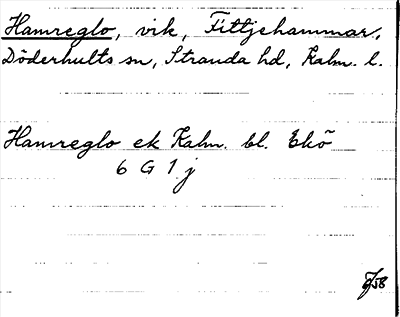 Hamreglo, vik, Fittjehammar,
Döderhults sn, Stranda hd, Kalm. l.
Hamreglo ek Kalm. bl. Ekö
6 G 1 j